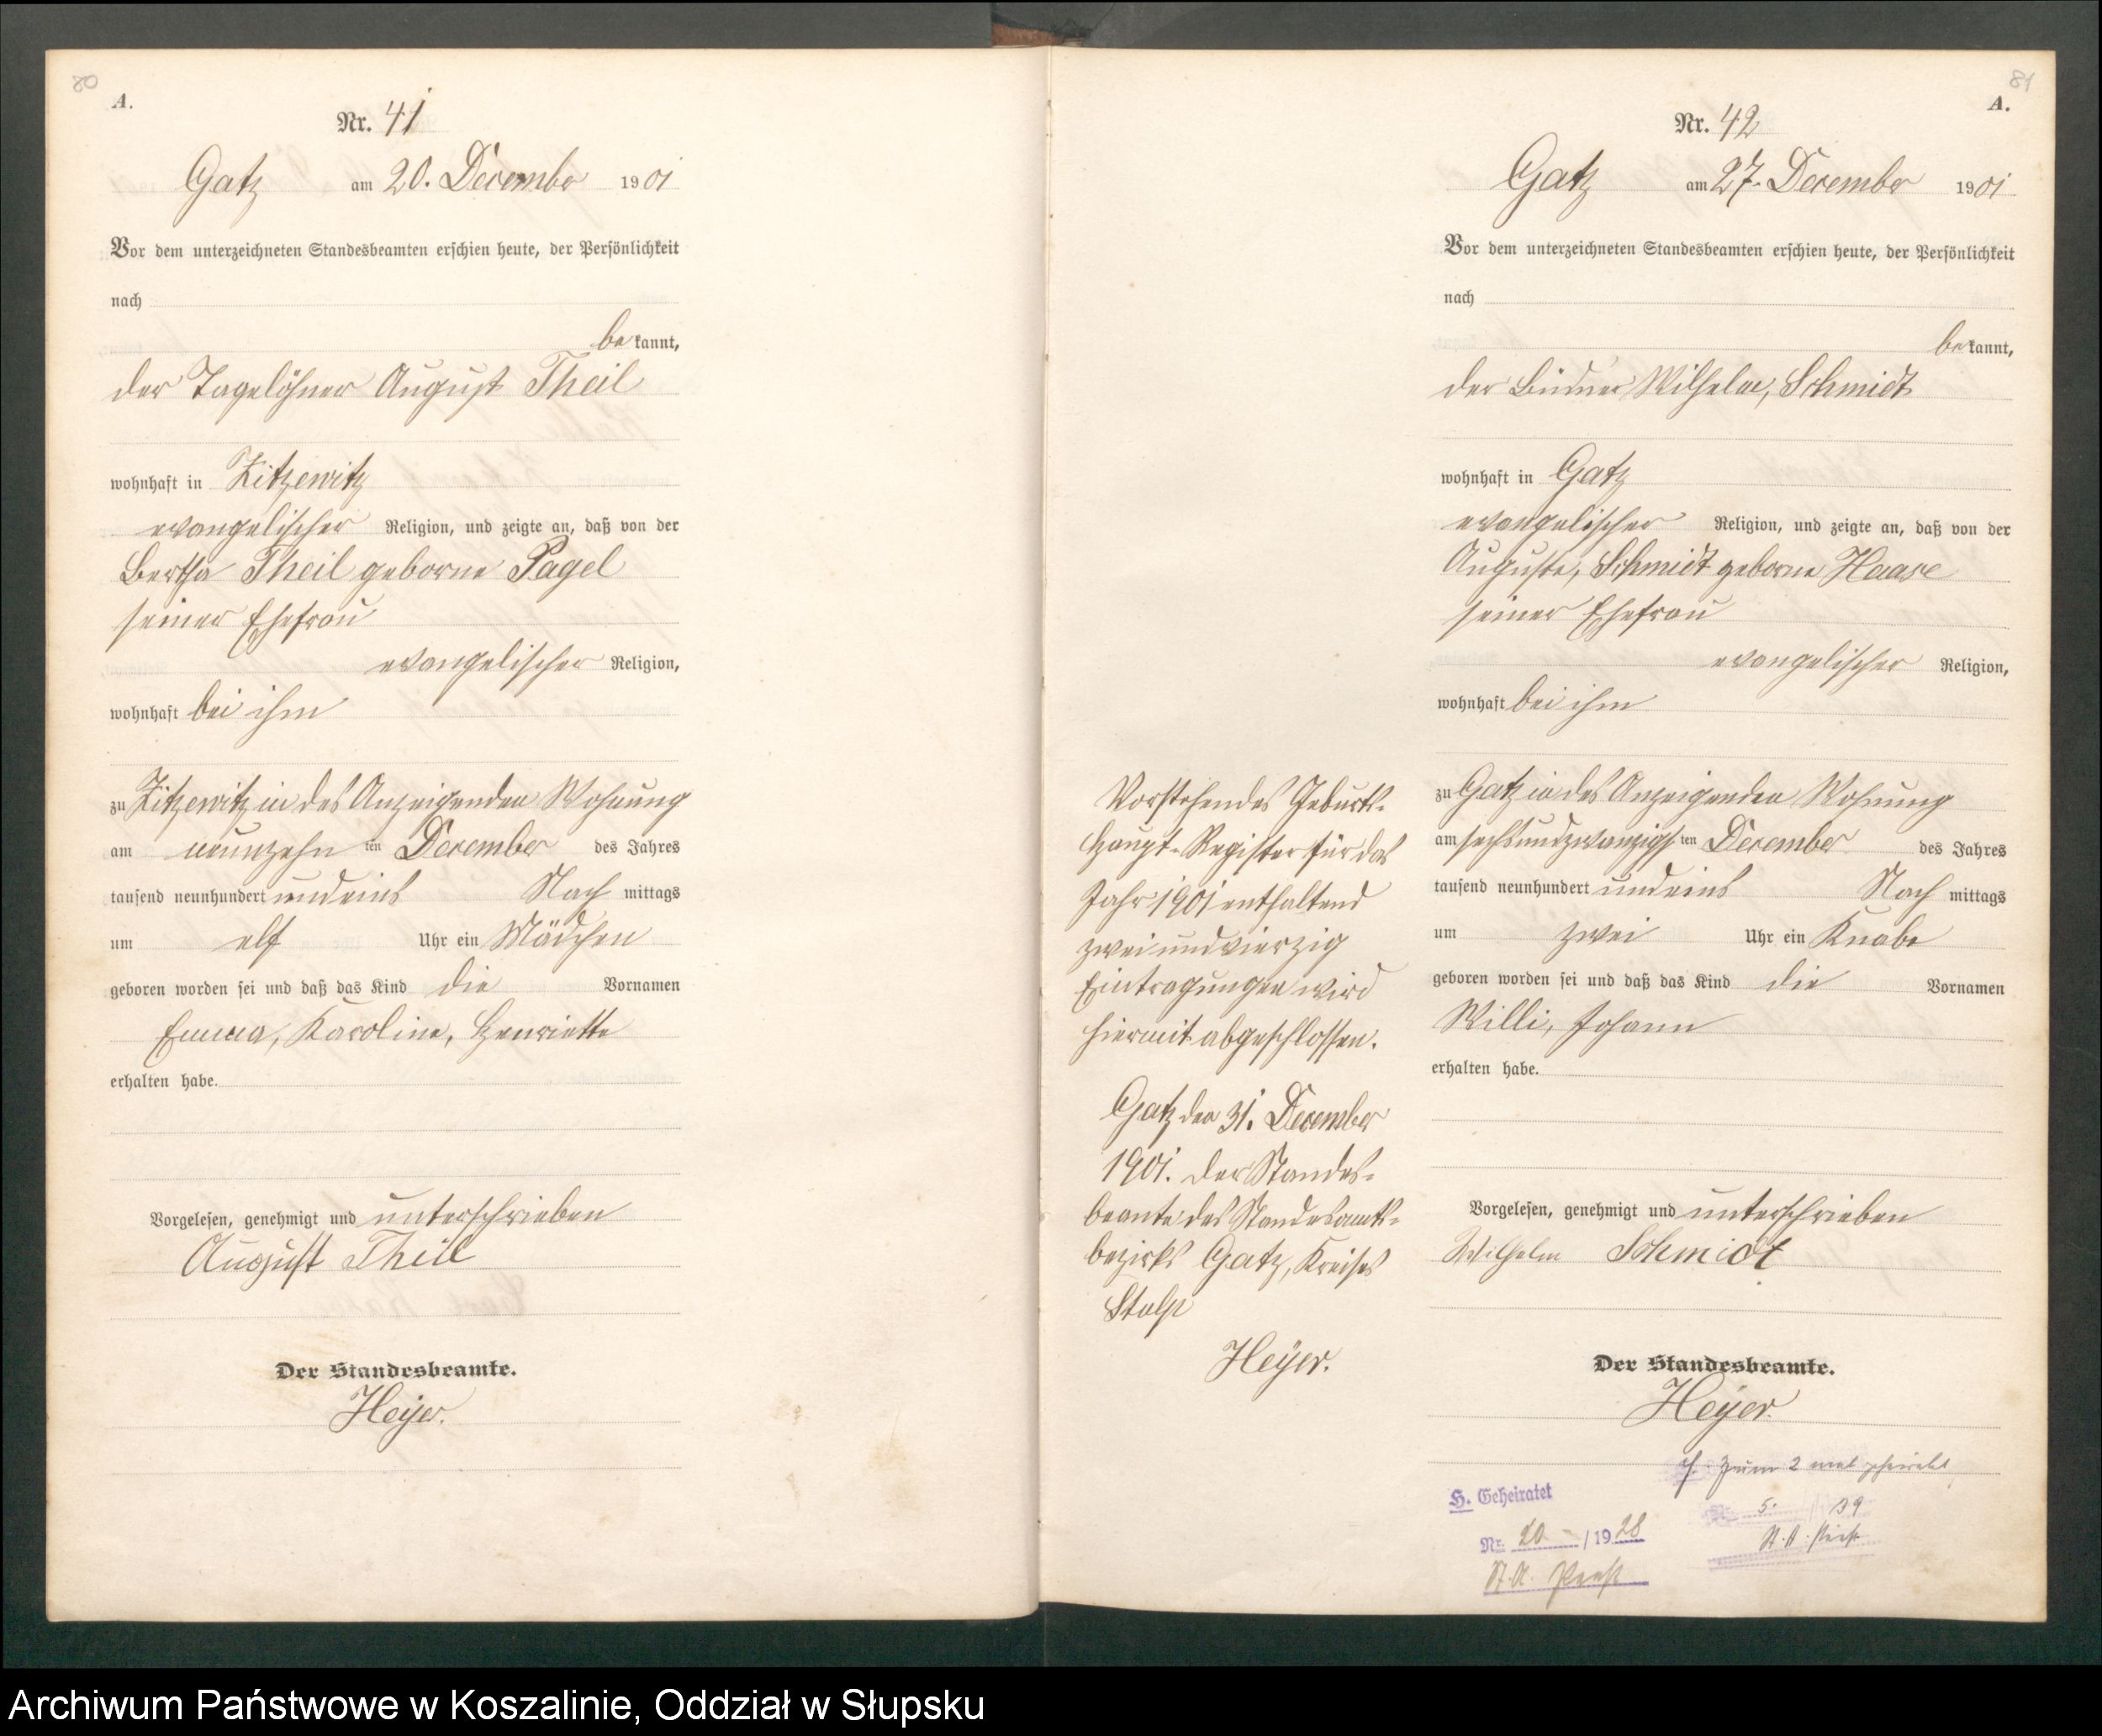 80
A.
Nr. 41
Gatz am 20. December 1901
Vor dem unterzeichneten Standesbeamten erschien heute, der Persönlichkeit
nach
bekannt,
der Tagelöhner August Theil
wohnhaft in Zitzewitz
evangelischer Religion, und zeigte an, daß von der
Bertha Theil geborne Pagel
seiner Ehefrau
evangelischer Religion,
wohnhaft bei ihm
zu Zitzewitz in des Anzeigenden Wohnung
am neunzehn ten December des Jahres
tausend neunhundert und eins Nach mittags
um elf Uhr ein Mädchen
geboren worden sei und daß das Kind die Vornamen
Emma, Karoline, Henriette
erhalten habe.
Vorgelesen, genehmigt und unterschrieben
August Theil
Der Standesbeamte.
Heyer.
81
A.
Nr. 42
Gatz am 27. December 1901
Vor dem unterzeichneten Standesbeamten erschien heute, der Persönlichkeit
nach
bekannt,
der Büdner Wilhelm, Schmidt
wohnhaft in Gatz
evangelischer Religion, und zeigte an, daß von der
Auguste, Schmidt geborne Haase
seiner Ehefrau
evangelischer Religion,
wohnhaft bei ihm
zu Gatz in des Anzeigenden Wohnung
am sechsundzwanzigs ten December des Jahres
tausend neunhundert und eins Nach mittags
um zwei Uhr ein Knabe
geboren worden sei und daß das Kind die Vornamen
Willi, Johann
erhalten habe.
Vorgelesen, genehmigt und unterschrieben
Wilhelm Schmidt
Der Standesbeamte.
Heyer.
Vorstehendes Geburts-
Haupt-Register für das
Jahr 1901 enthaltend
zwei und vierzig
Eintragungen wird
hiermit abgeschlossen.
Gatz den 31. December
1901. Der Standes-
beamte des Standesamts-
bezirks Gatz, Kreises
Stolp
Heyer.
H. Geheiratet
Nr. 20 / 1928
St. A.
zum 2 mal geheiratet
5. / 39
St. A.
Archiwum Państwowe w Koszalinie, Oddział w Słupsku